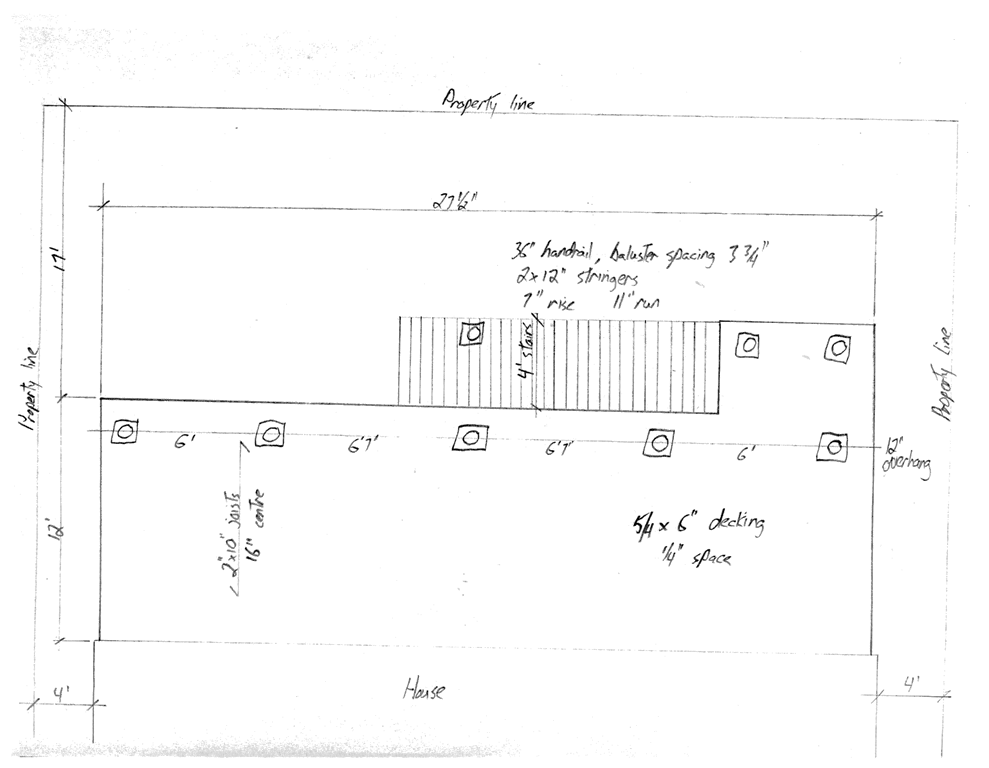 Property line
27 1/2"
17'
36" handrail, baluster spacing 3 3/4"
2x12" stringers
7" rise 11" run
4' stairs
Property line
Property line
6'
6'7"
6'7"
6'
12"
overhang
12'
2"x10" joists
16" centre
5/4 x 6" decking
1/4" space
4'
House
4'